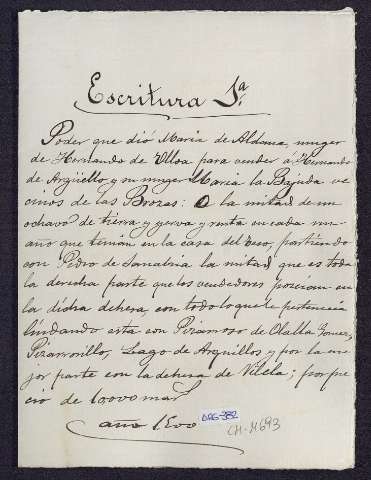 Escritura 1ª
Poder que dió Maria de Aldana, muger
de Hernando de Ulloa para vender á Hernando
de Argüello y su muger Maria la Bajuda ve
cinos de las Brozas: O la mitad de un
ochavo de tierra y yerva y renta en cada un
año que tenian en la casa del, partiendo
con Pedro de Sanabria la mitad que es toda
la derecha parte que los vendedores poseian en
la dicha dehesa, con todo lo que le pertenecia
lindando esta con Piramoso de Olalla Gomez,
Piramonillo, Lago de Arguillos y por la ma
jor parte con la dehesa de Vilela; por pre
cio de 10000 mar
año 1500
DRG-382
CH-M693